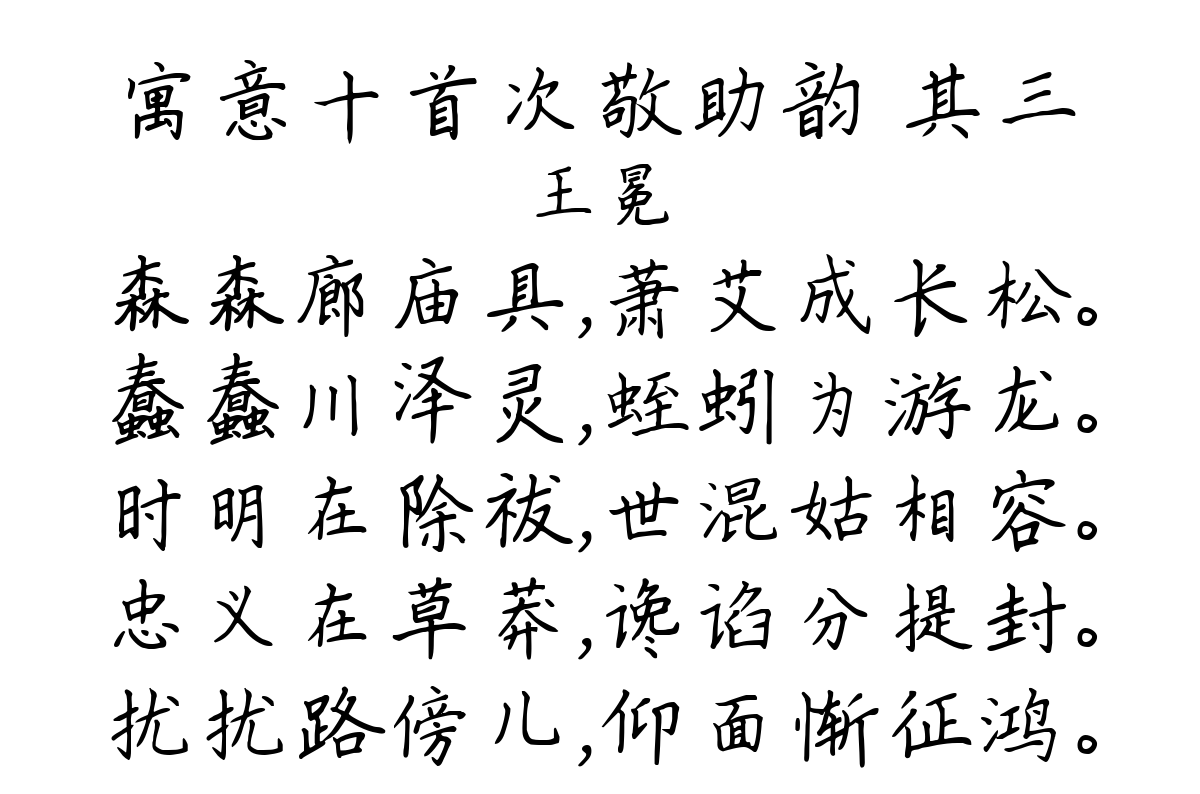 寓意十首次敬助韵 其三
王冕
森森廊庙具,萧艾成长松。
蠢蠢川泽灵,蛭蚓为游龙。
时明在除祓,世混姑相容。
忠义在草莽,谗谄分提封。
扰扰路傍儿,仰面惭征鸿。